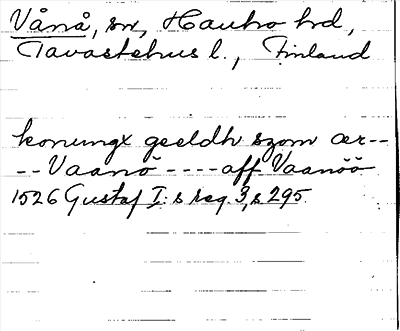 Vånå, sn, Hauho hd,
Tavastehus l., Finland
konungx geeldh szom ær--
--Vaanö ---- aff Vaanöö
1526 Gustaf I:s reg. 3, s 295.